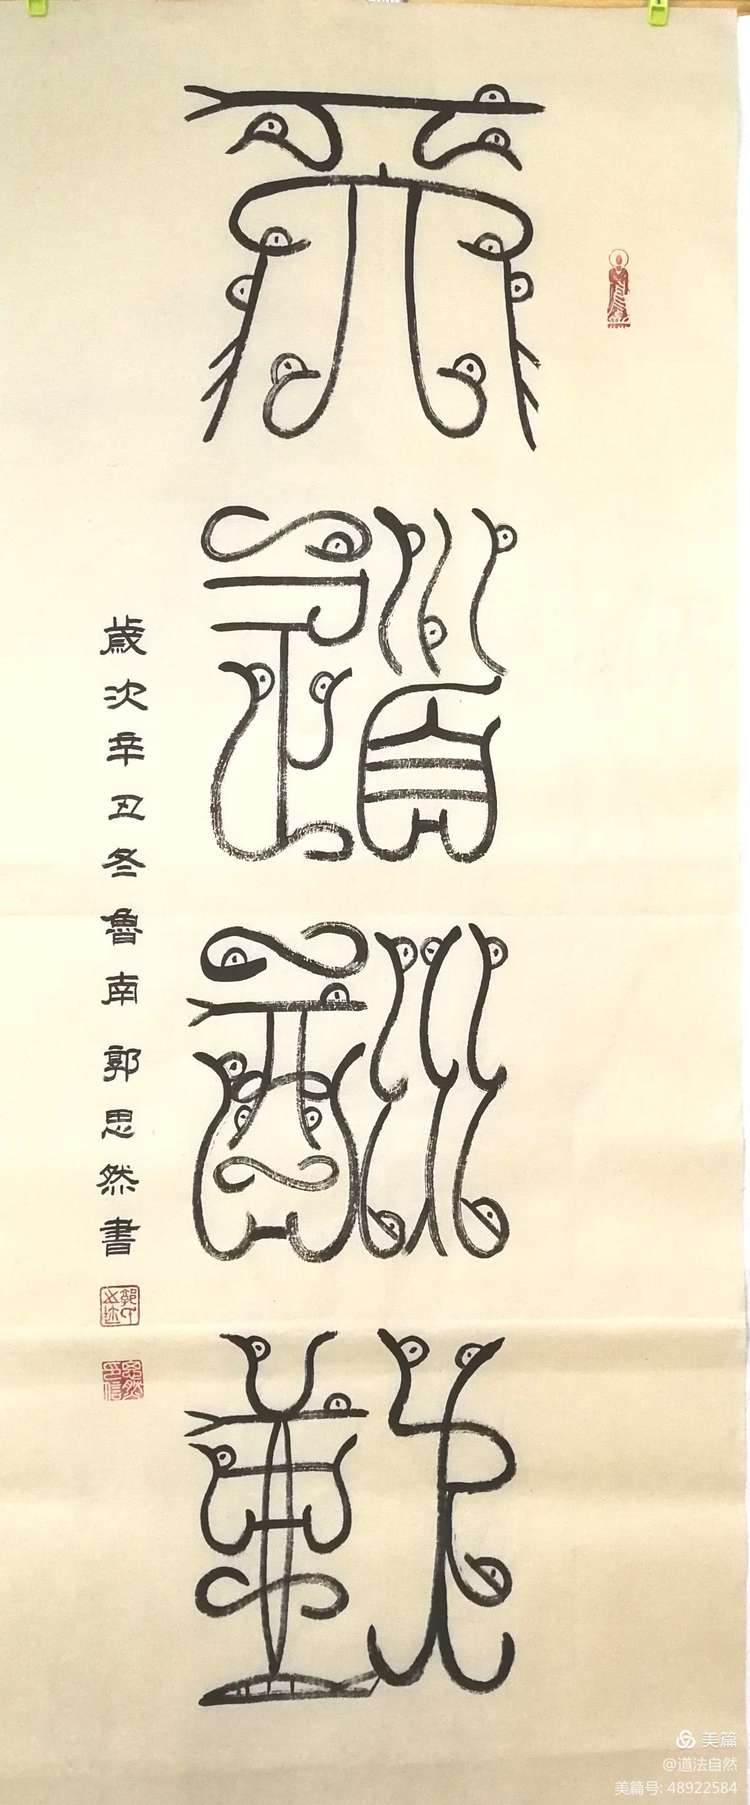 天道酬勤
歲次辛丑冬魯南郭思然書
美篇
@道法自然
美篇号: 48922584